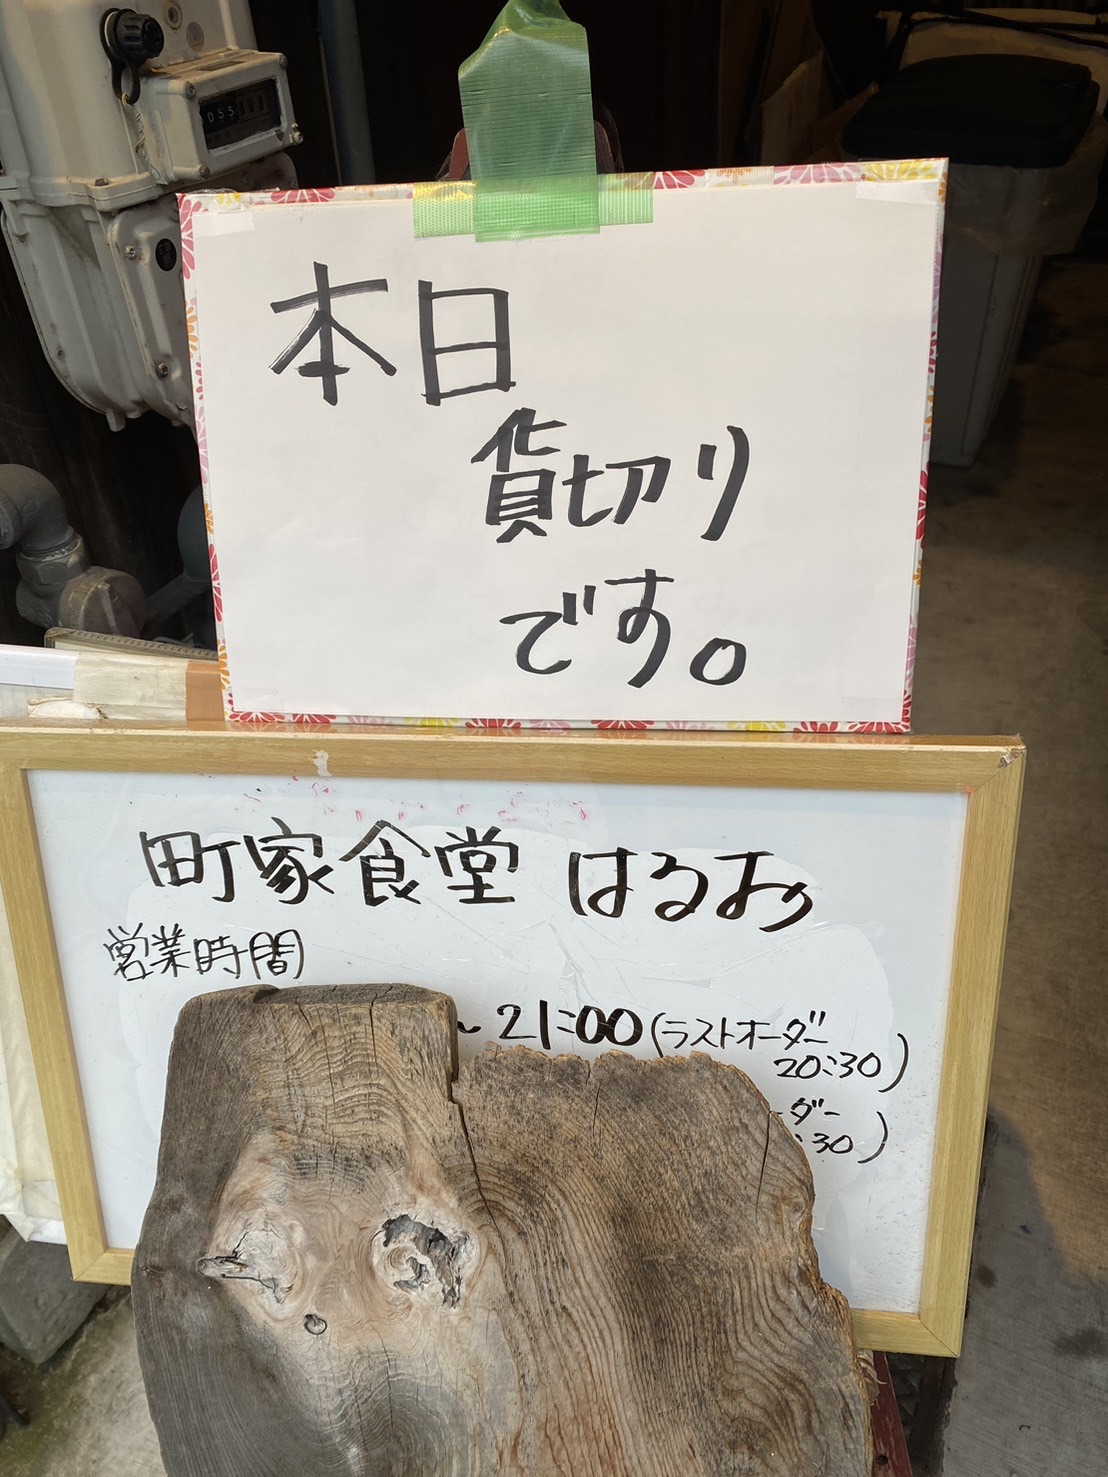 本日
貨切り
です。
町家食堂 はるお
営業時間
~21:00(ラストオーダー
20:30)
ーダー
:30)